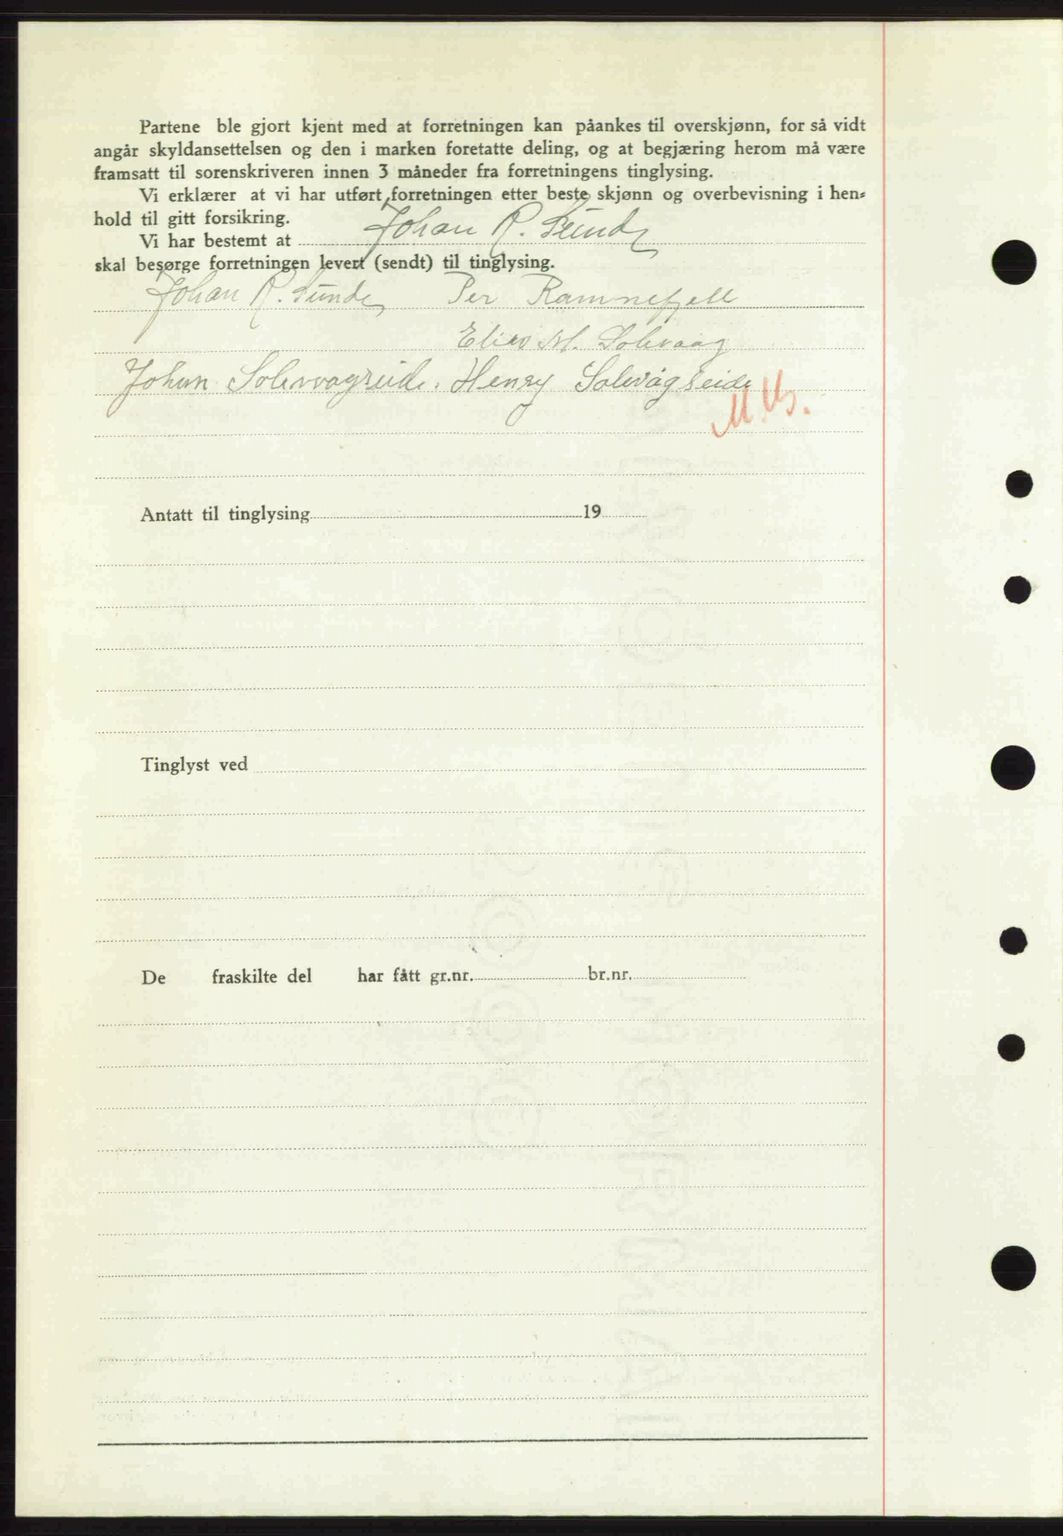 Partene ble gjort kjent med at forretningen kan påankes til overskjønn, for så vidt
angår skyldansettelsen og den i marken foretatte deling, og at begjæring herom må være
framsatt til sorenskriveren innen 3 måneder fra forretningens tinglysing.
Vi erklærer at vi har utført forretningen etter beste skjønn og overbevisning i hen-
hold til gitt forsikring.
Vi har bestemt at Johan R. Sunde
skal besørge forretningen levert (sendt) til tinglysing.
Johan R. Sunde Per Ramnefjell
Elias M. Solevaag
Johan Solevvagseide. Henry Solevågseide
Antatt til tinglysing 19
Tinglyst ved
De fraskilte del har fått gr.nr. br.nr.